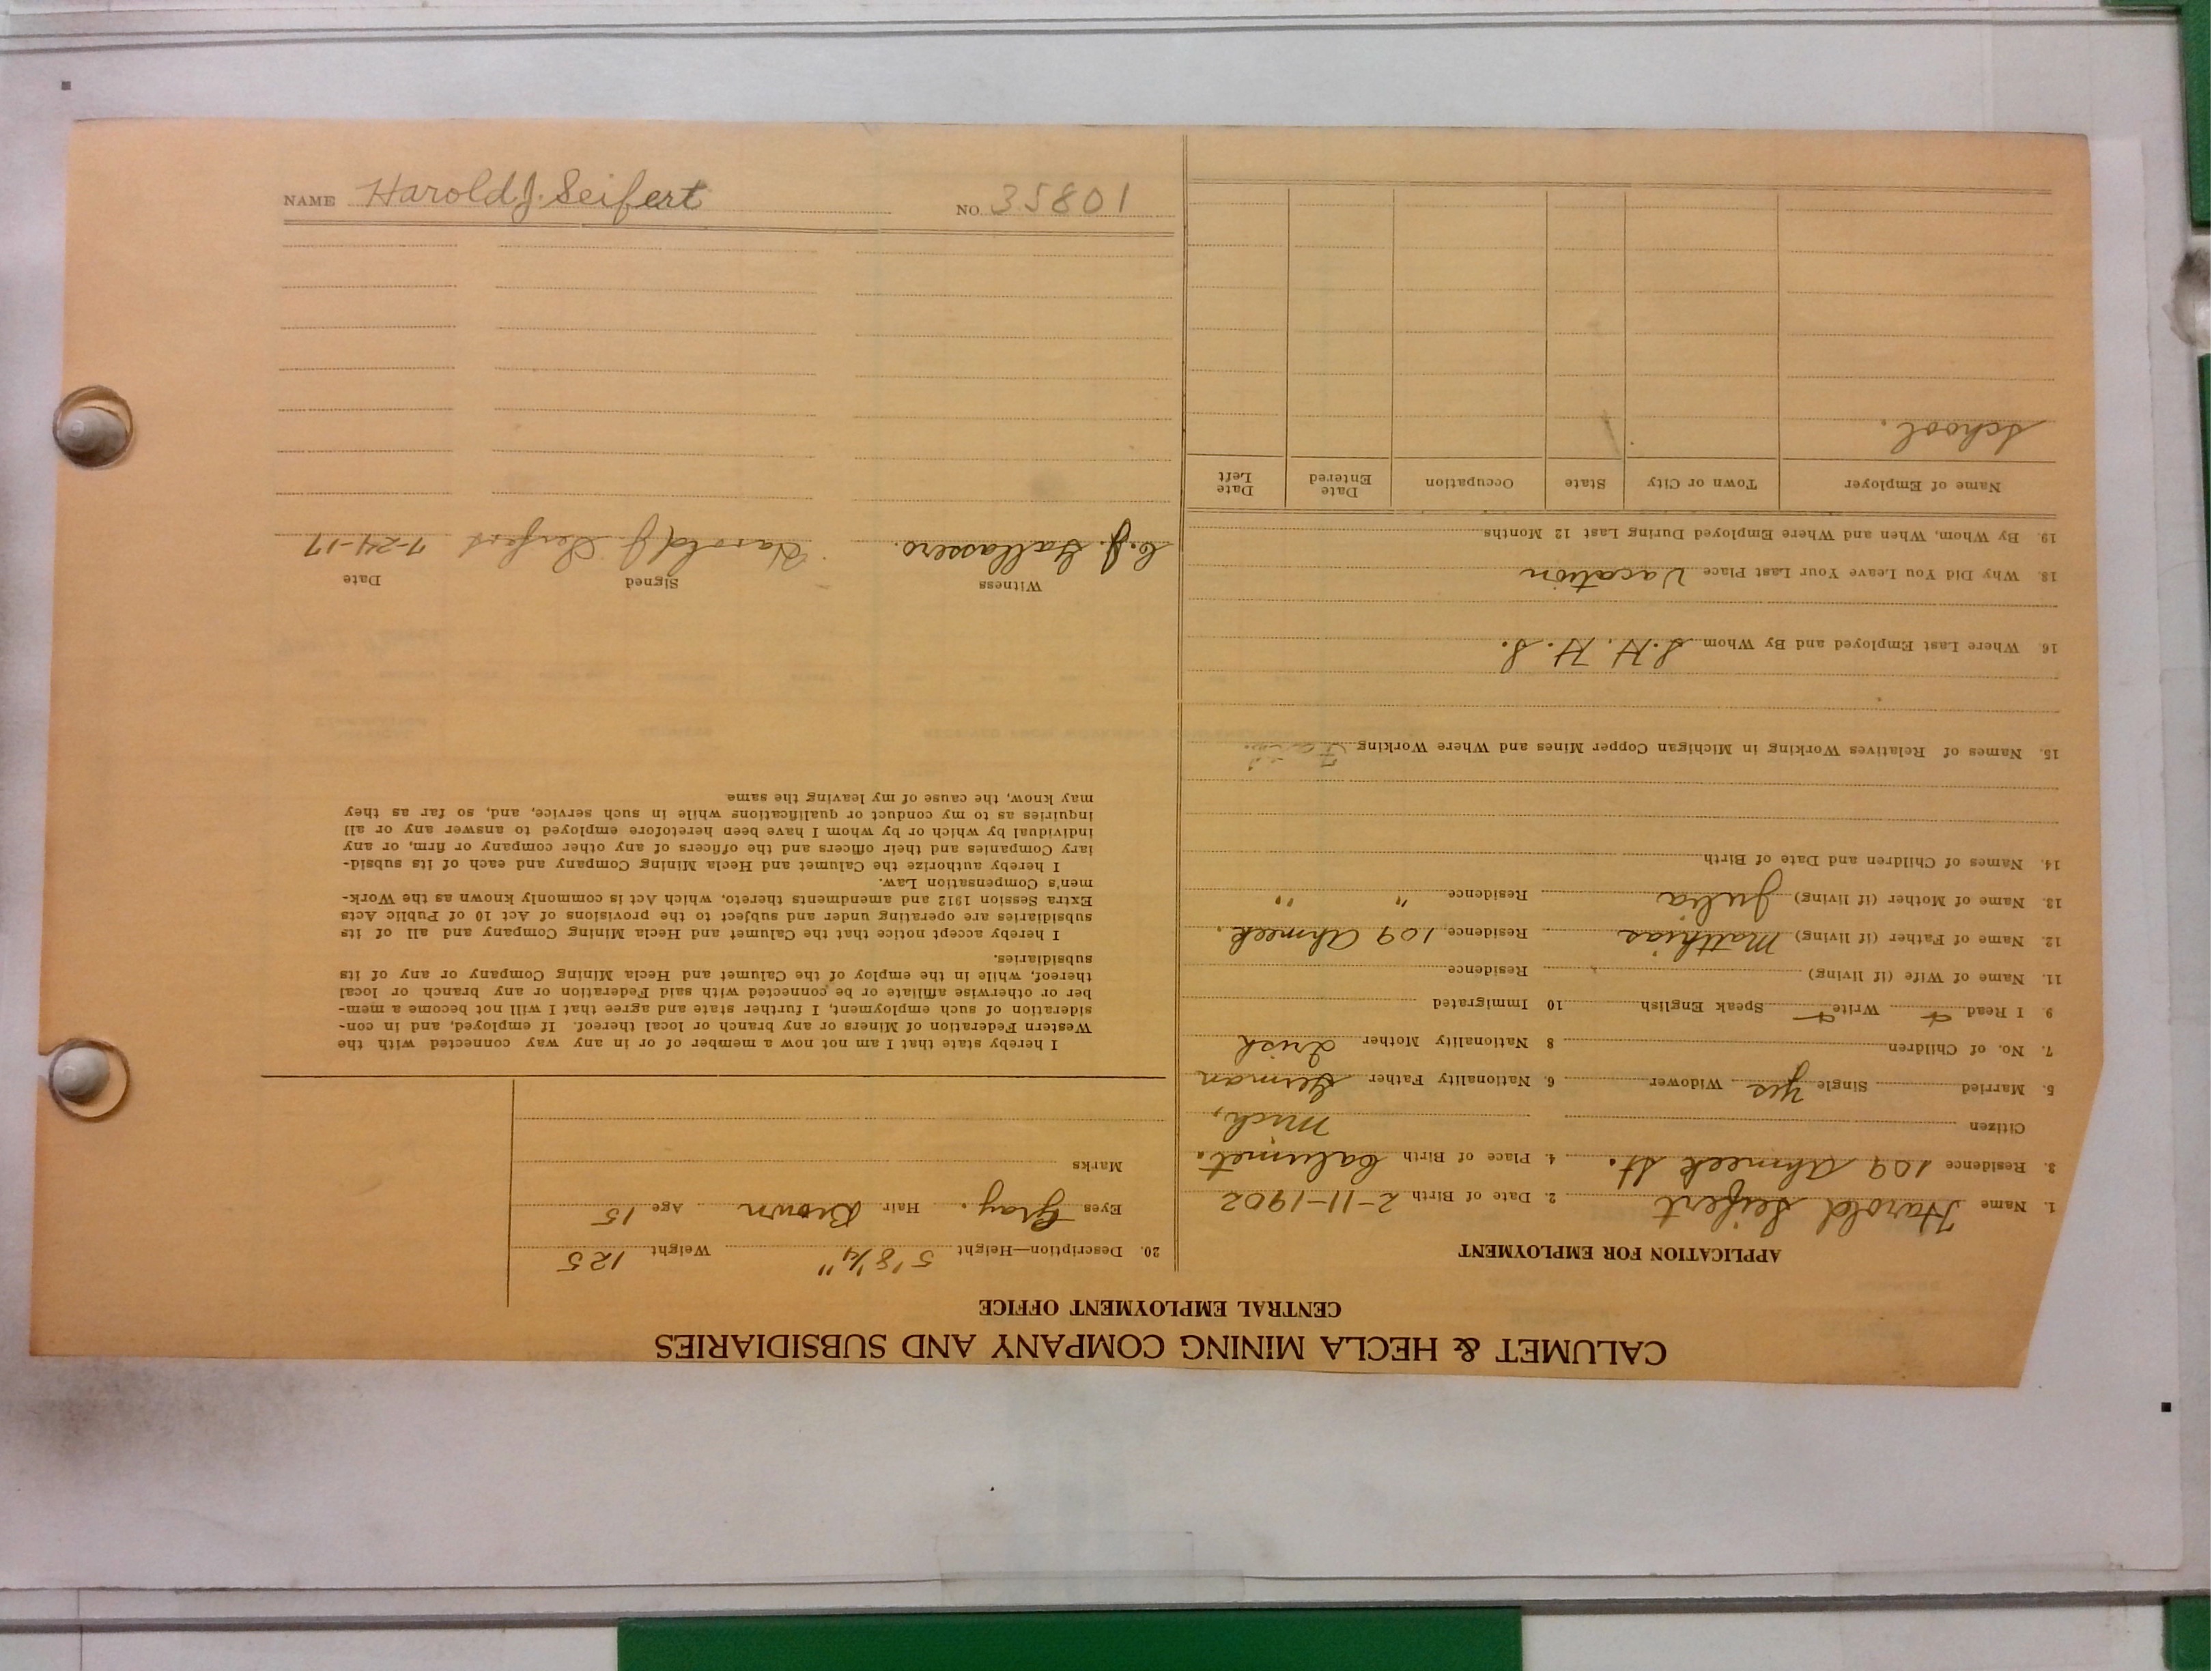 CALUMET & HECLA MINING COMPANY AND SUBSIDIARIES
CENTRAL EMPLOYMENT OFFICE
APPLICATION FOR EMPLOYMENT
1. Name Harold Seifert 2. Date of Birth 2-11-1902
3. Residence 109 Ahmeek St. 4. Place of Birth Calumet.
Citizen Mich,
5. Married Single Yes Widower 6. Nationality Father German
7. No. of Children 8 Nationality Mother Irish
9. I Read Write Speak English 10 Immigrated
11. Name of Wife (if living) Residence
12. Name of Father (if living) Matthias Residence 109 Ahmeek.
13. Name of Mother (if living) Julia Residence " "
14. Names of Children and Date of Birth
15. Names of Relatives Working in Michigan Copper Mines and Where Working
16. Where Last Employed and By Whom S.H.H.S.
18. Why Did You Leave Your Last Place Vacation
19. By Whom, When and Where Employed During Last 12 Months
Name of Employer Town or City State Occupation Date Entered Date Left
School.
20. Description—Height 5'8¼" Weight 125
Eyes Gray. Hair Brown Age 15
Marks
I hereby state that I am not now a member of or in any way connected with the
Western Federation of Miners or any branch or local thereof. If employed, and in con-
sideration of such employment, I further state and agree that I will not become a mem-
ber or otherwise affiliate or be connected with said Federation or any branch or local
thereof, while in the employ of the Calumet and Hecla Mining Company or any of its
subsidiaries.
I hereby accept notice that the Calumet and Hecla Mining Company and all of its
subsidiaries are operating under and subject to the provisions of Act 10 of Public Acts
Extra Session 1912 and amendments thereto, which Act is commonly known as the Work-
men's Compensation Law.
I hereby authorize the Calumet and Hecla Mining Company and each of its subsid-
iary Companies and their officers and the officers of any other company or firm, or any
individual by which or by whom I have been heretofore employed to answer any or all
inquiries as to my conduct or qualifications while in such service, and, so far as they
may know, the cause of my leaving the same
Witness Signed Date
C.J. Gallassero. Harold J. Seifert 7-24-17
NAME Harold J. Seifert NO. 35801